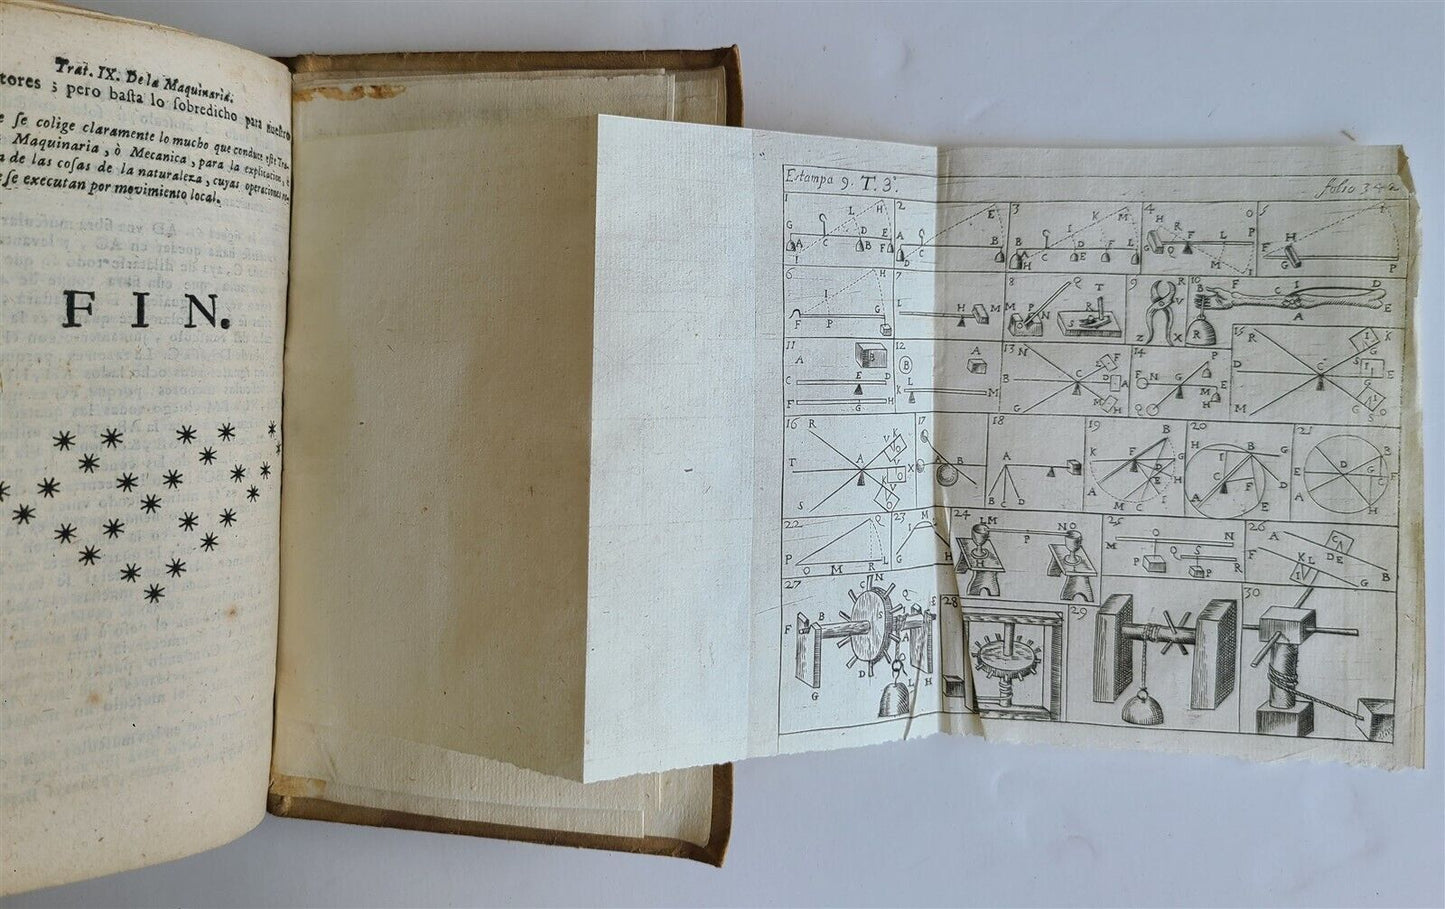 Trat. IX. De la Maquinaria.
tores ; pero baſta lo ſobredicho para nueſtro
e ſe colige claramente lo mucho que conduce eſte Tra-
Maquinaria, ò Mecanica, para la explicacion, è
a de las coſas de la naturaleza, cuyas operaciones
ſe executan por movimiento local.
FIN.
Estampa 9. T. 3º.
folio 342
1
G L H
A C D E
B F
2
E
A B
C
D
3
K M
B I F L
H C D E
4
H R O
F L P
G Q M I
5
I
H
F G P
6
H
I
G
F P
7
L H M
8
Q T
M P N R
S
9
R
V
Z X
10
B F C I D
A E
R
11
A B
C E D
F G H
12
B A
K L M
13
N
E F
B C D A
G M H
14
P
F N G E
M H
Q
15
R I K
G
D C S I E
M C I O
S
16
R V K
O
T A V O X
K V
S O
17
A B
18
A
B C D
19
B
K F G
D H
A E
M C I
20
B G
I
C F D
A E
21
B
E D G F
A C
H
22
Q
P O M R L
23
I M
G H
24
LM NO
P
25
M O N
Q S R
P P
26
A C
F K L D E
I B
G
27
C N
F B S Q E
A
D L H
G
28
29
30